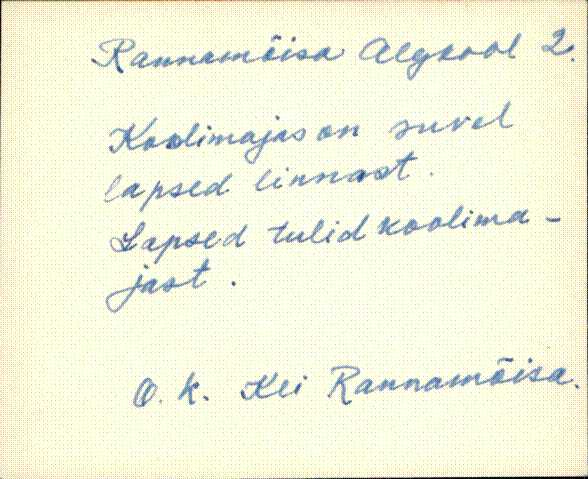 Rannamõisa Algkool 2.
Koolimajas on suvel
lapsed linnast.
Lapsed tulid koolima-
jast.
O. K. Kei Rannamõisa.